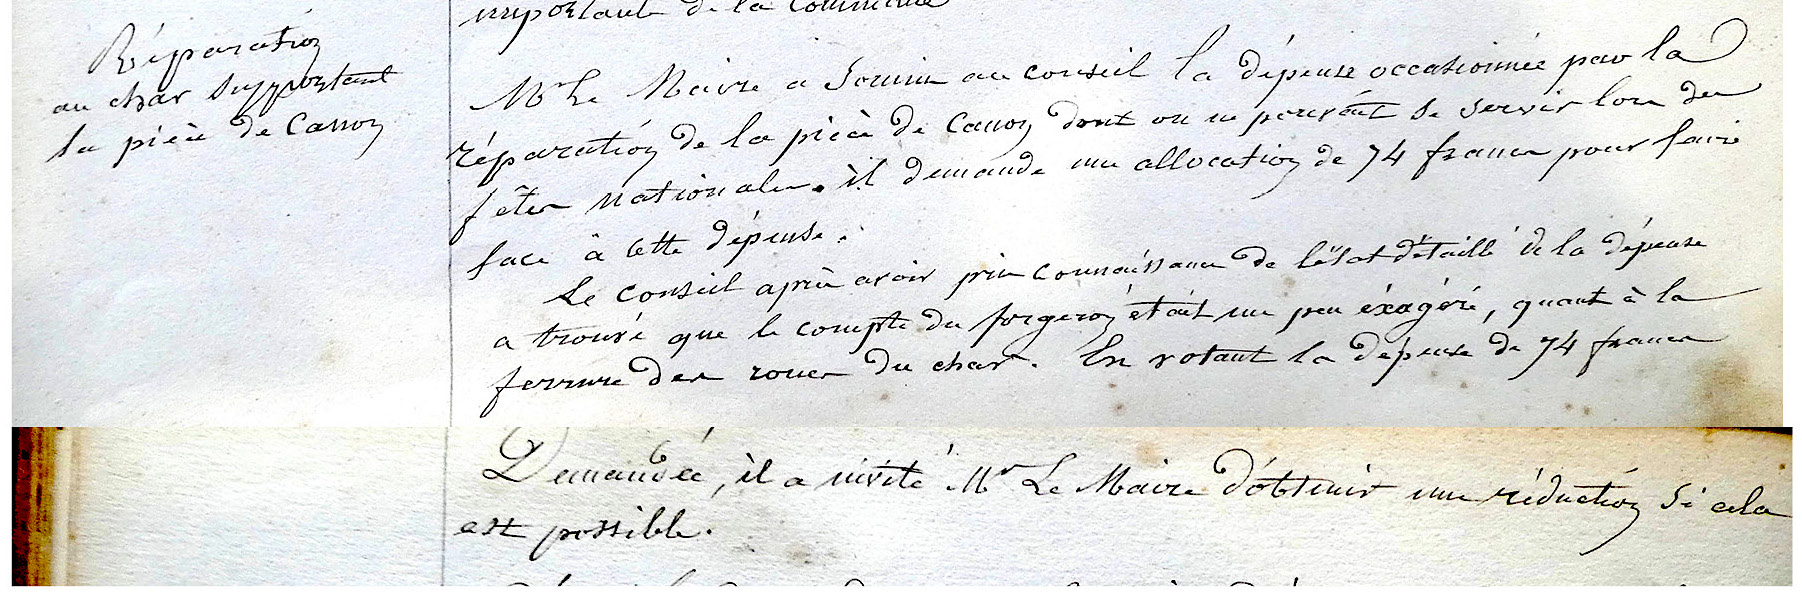 important de la commune
Réparation
au char supportant
la pièce de Canon
Mr Le Maire a soumis au conseil la dépense occasionnée par la
réparation de la pièce de Canon dont on ne pouvait se servir lors des
fêtes nationales. il demande une allocation de 74 francs pour faire
face à cette dépense.
Le conseil après avoir pris connaissance de l'état détaillé de la dépense
a trouvé que le compte du forgeron était un peu éxagéré, quant à la
ferrure des roues du char. En votant la dépense de 74 francs
Demandée, il a invité Mr Le Maire d'obtenir une réduction si cela
est possible.